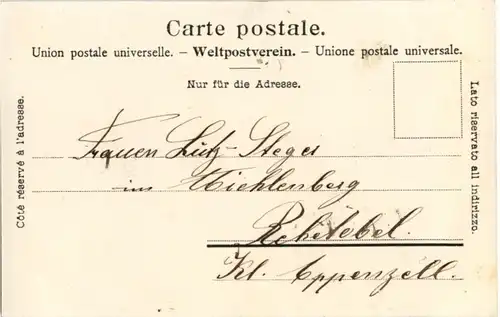 Carte postale.
Union postale universelle. – Weltpostverein. – Unione postale universale.
Nur für die Adresse.
Côté réservé à l'adresse.
Lato riservato all indirizzo.
Frauen Lutz-Steger
im Michlenberg
Rehetobel.
Kt. Appenzell.